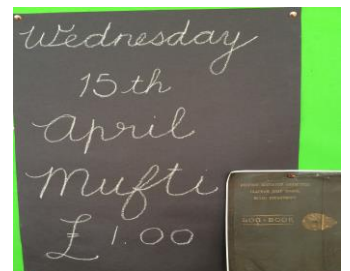 Wednesday
15th
April
Mufti
£1.00
LOG-BOOK